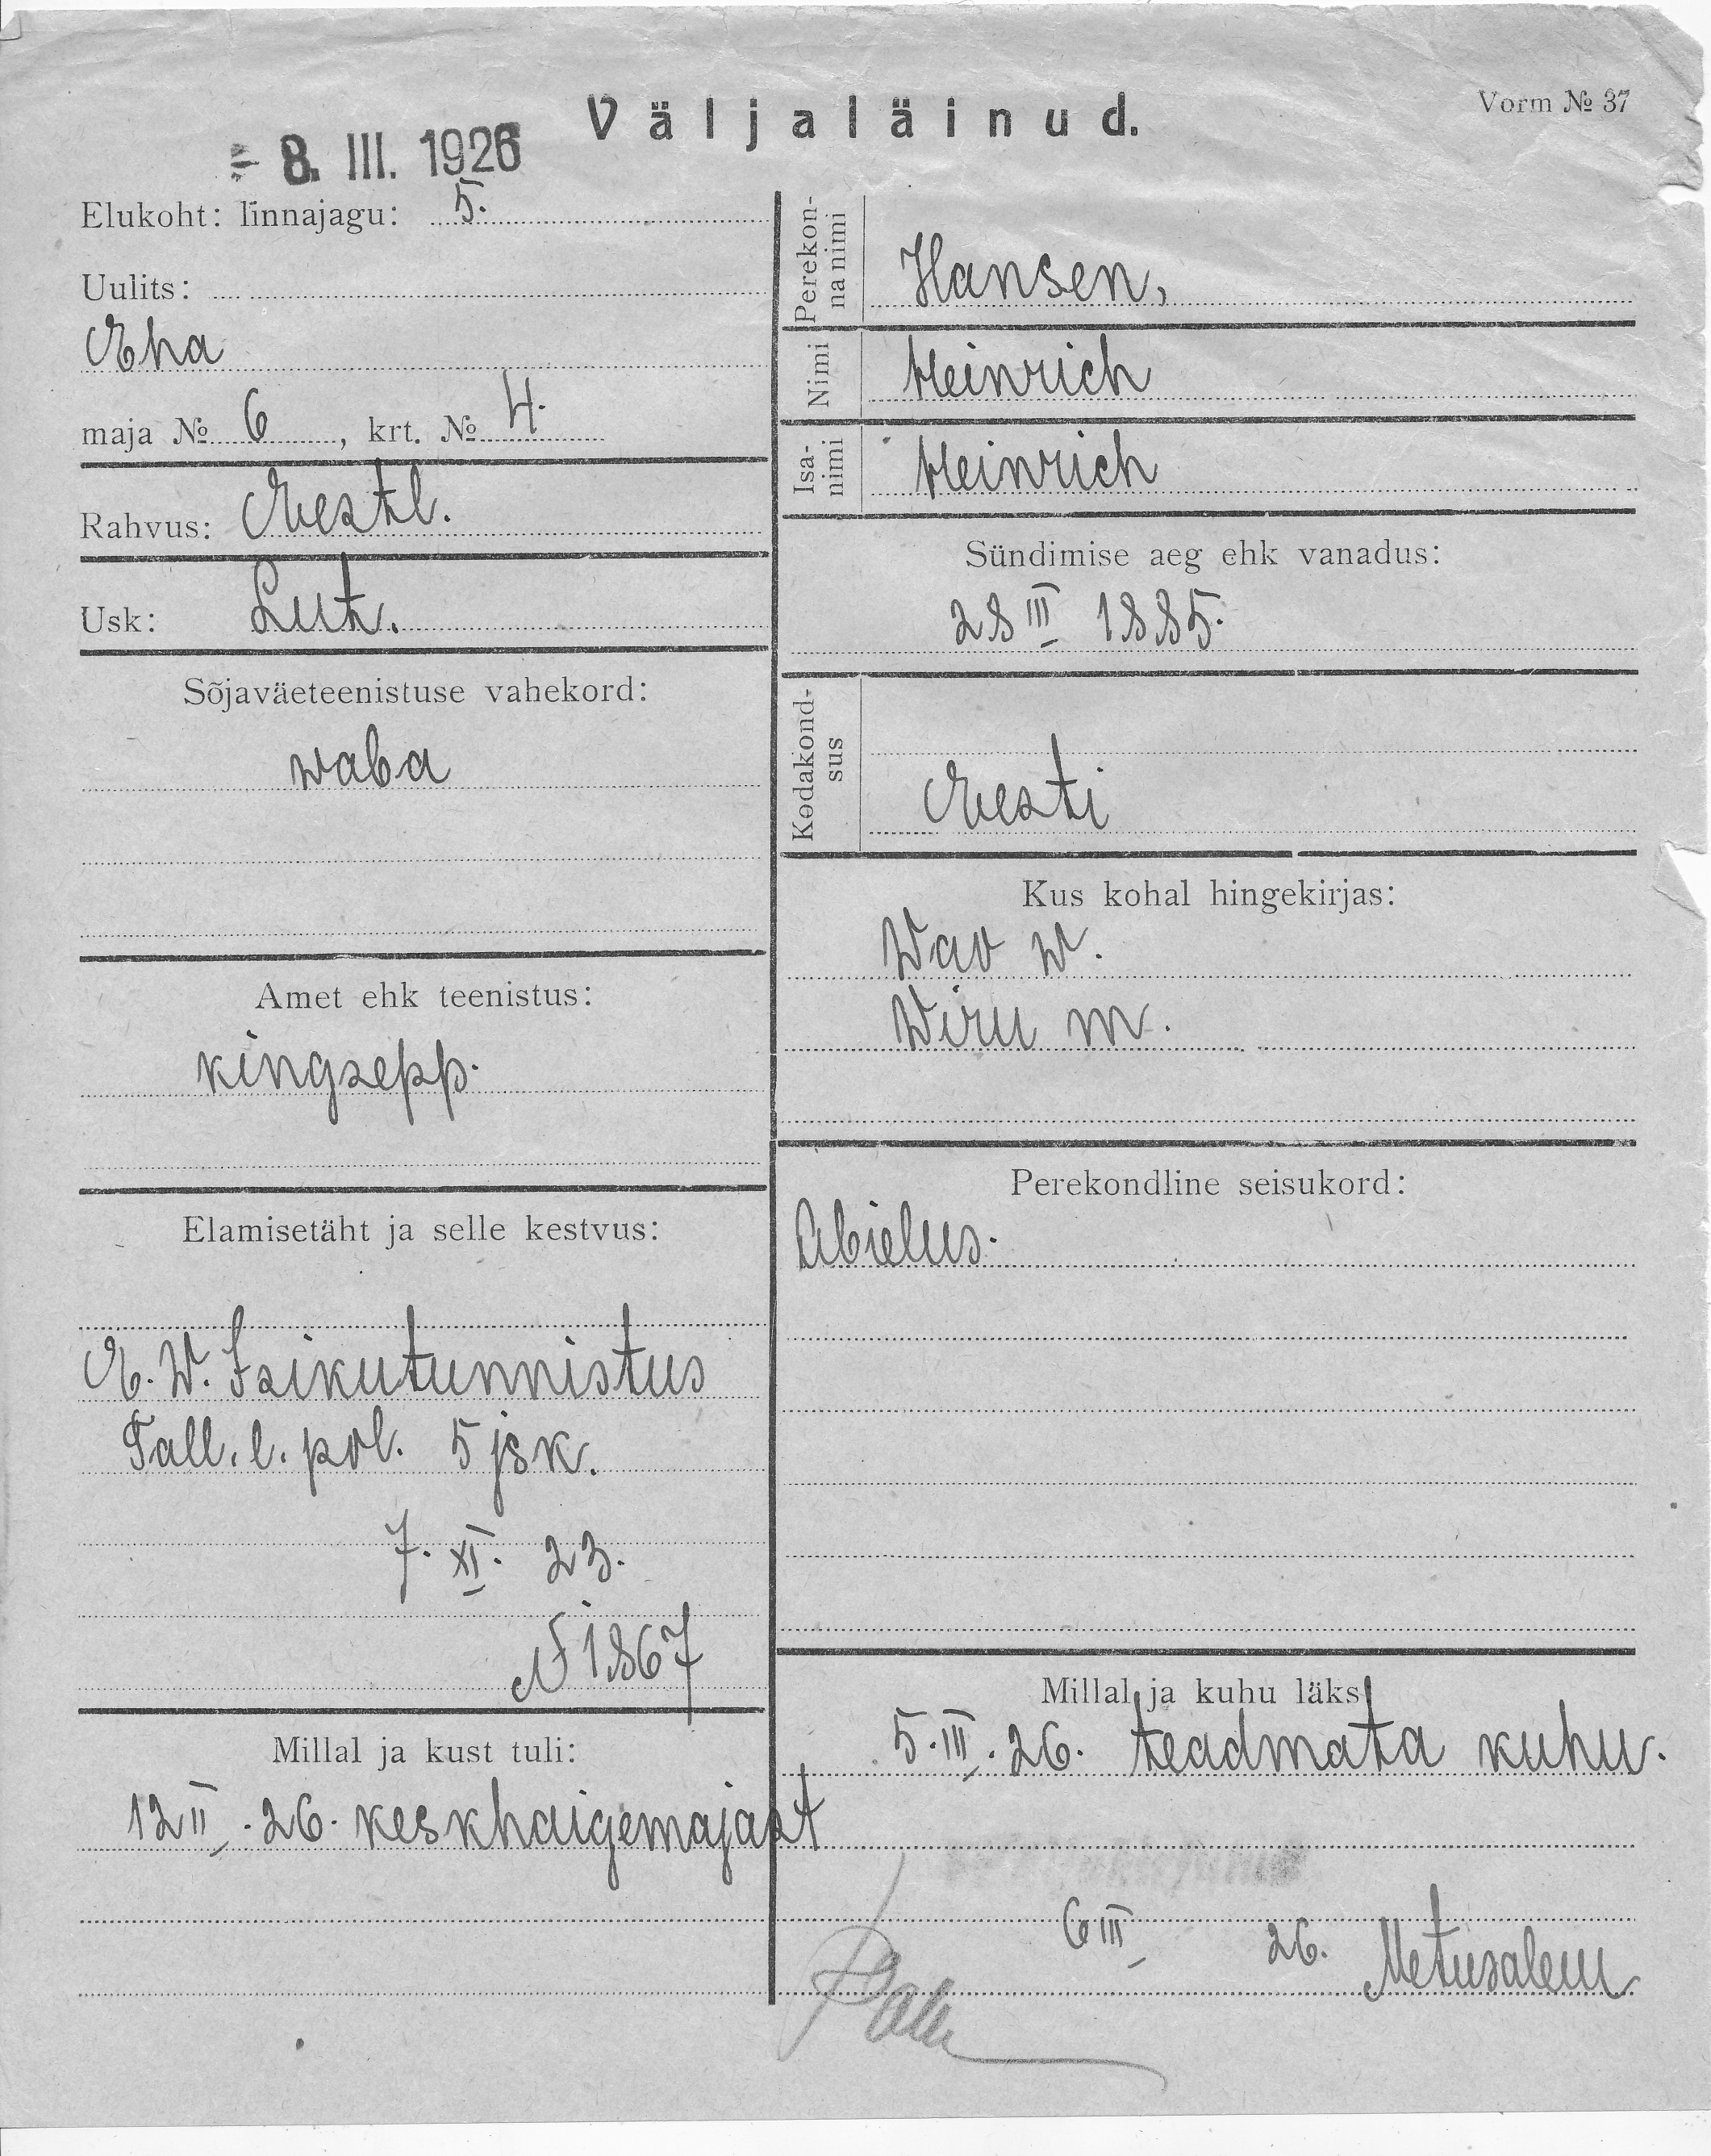 Väljaläinud.
Vorm № 37
- 8. III. 1926
Elukoht: linnajagu: 5.
Uulits:
Eha
maja № 6, krt. № 4.
Rahvus: Eestl.
Usk: Lut.
Sõjaväeteenistuse vahekord:
waba
Amet ehk teenistus:
kingsepp.
Elamisetäht ja selle kestvus:
E. W. Isikutunnistus
Tall. l. pol. 5 jsk.
7. XI. 23.
N 1867
Millal ja kust tuli:
12 II. 26. keskhaigemajast
Perekonna nimi
Hansen,
Nimi
Heinrich
Isa-
nimi
Heinrich
Sündimise aeg ehk vanadus:
28 III 1885.
Kodakond-
sus
Eesti
Kus kohal hingekirjas:
Wao w.
Wiru m.
Perekondline seisukord:
Abielus.
Millal ja kuhu läks
5. III. 26. teadmata kuhu.
6 III 26. Metusalem